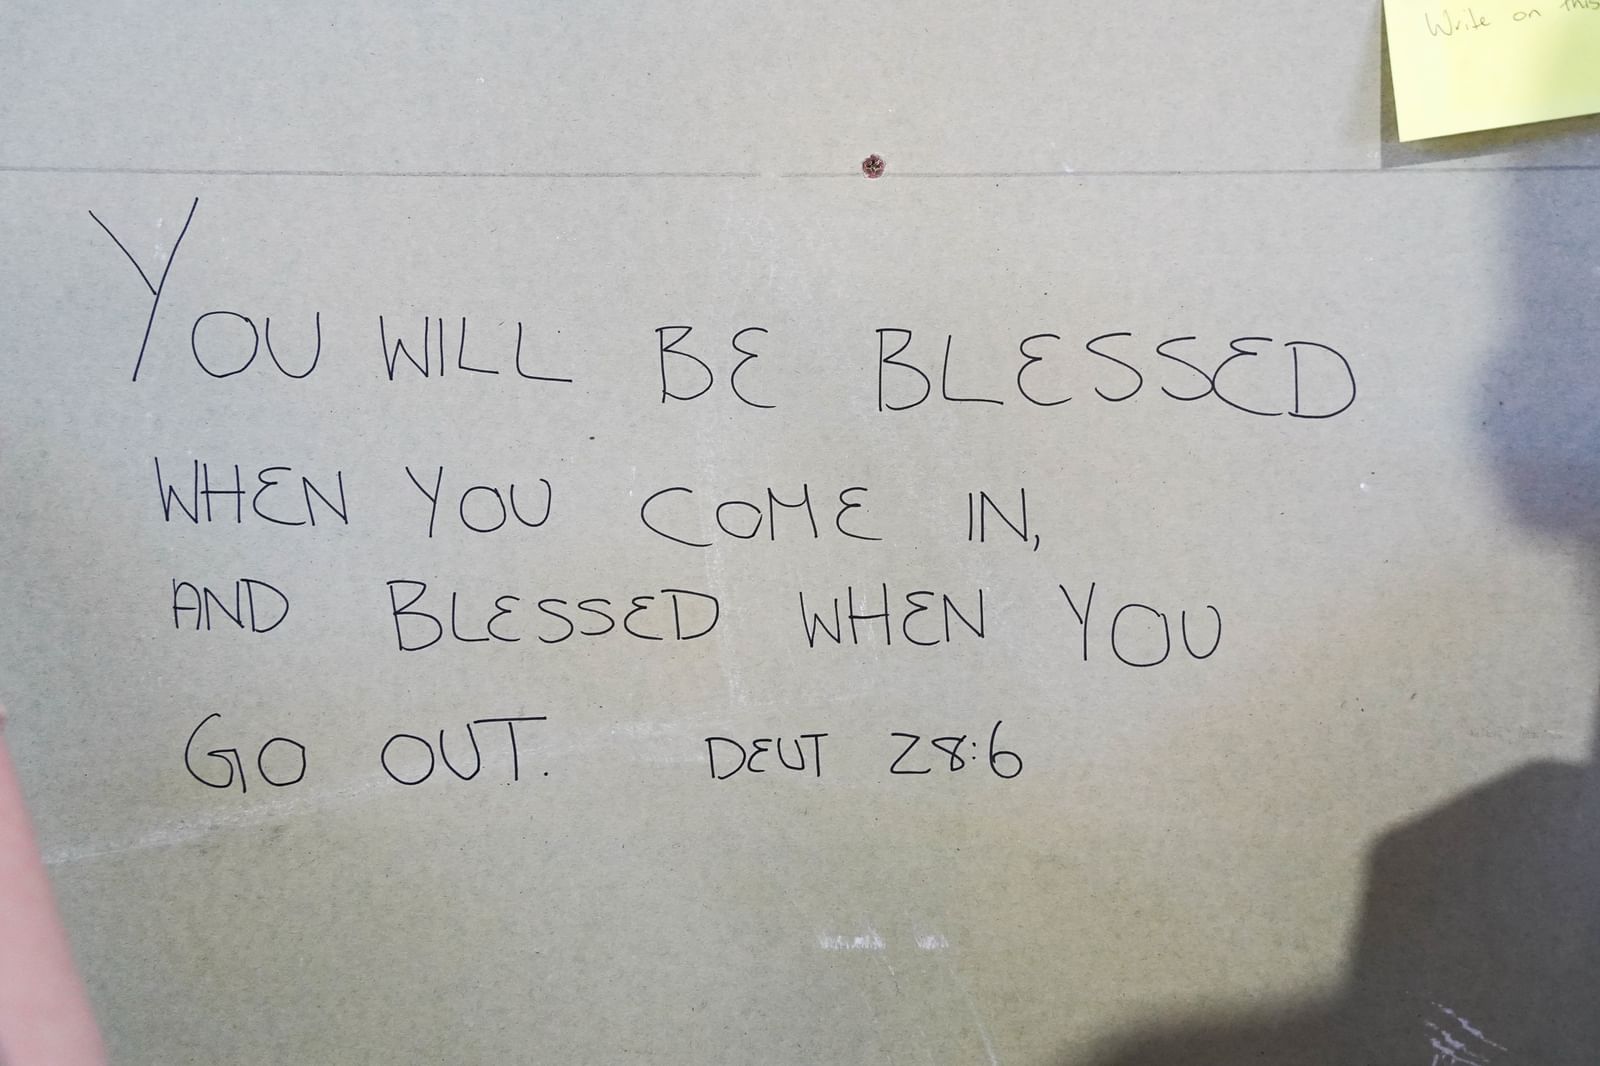 Write on this
YOU WILL BE BLESSED
WHEN YOU COME IN,
AND BLESSED WHEN YOU
GO OUT. DEUT 28:6